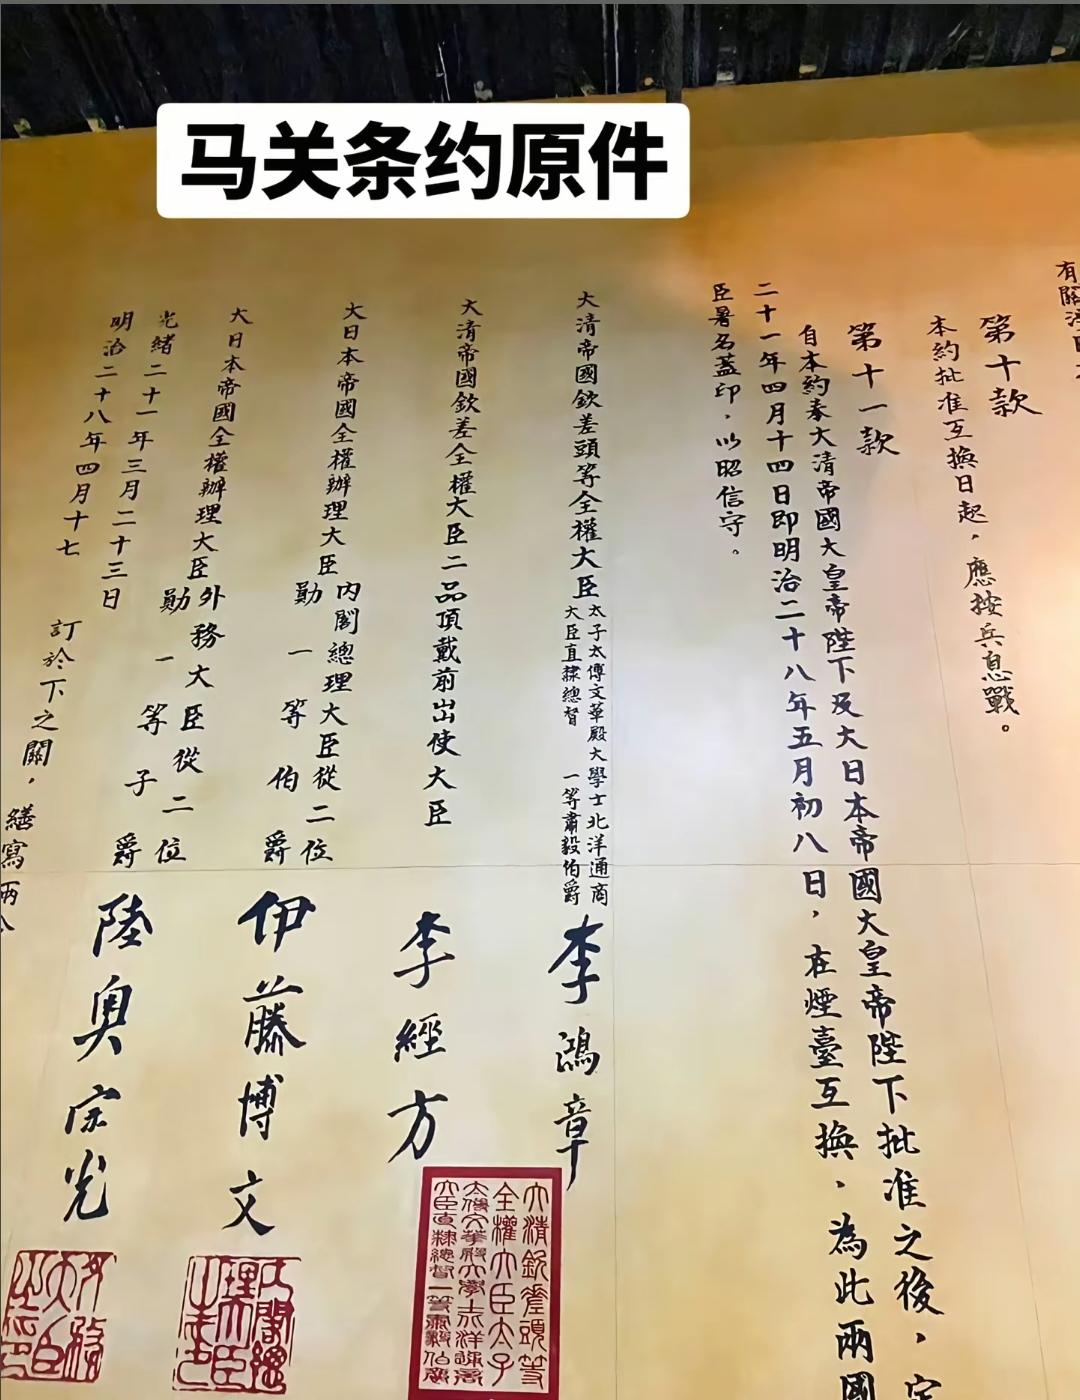 马关条约原件
有關
第十款
本約批准互換日起，應按兵息戰。
第十一款
自本約奉大清帝國大皇帝陛下及大日本帝國大皇帝陛下批准之後，定
二十一年四月十四日即明治二十八年五月初八日，在煙臺互換、為此兩國
臣署名蓋印，以昭信守。
大清帝國欽差頭等全權大臣
太子太傅文華殿大學士北洋通商
大臣直隸總督 一等肅毅伯爵
李鴻章
大清帝國欽差全權大臣二品頂戴前出使大臣
李經方
大日本帝國全權辦理大臣
內閣總理大臣從二位
勛一等伯爵
伊藤博文
大日本帝國全權辦理大臣
外務大臣從二位
勛一等子爵
陸奧宗光
光緒二十一年三月二十三日
明治二十八年四月十七
訂於下之關，繕寫兩
大清欽差頭等
全權大臣太子
太傅文華殿大學士北洋通商
大臣直隸總督一等肅毅伯爵